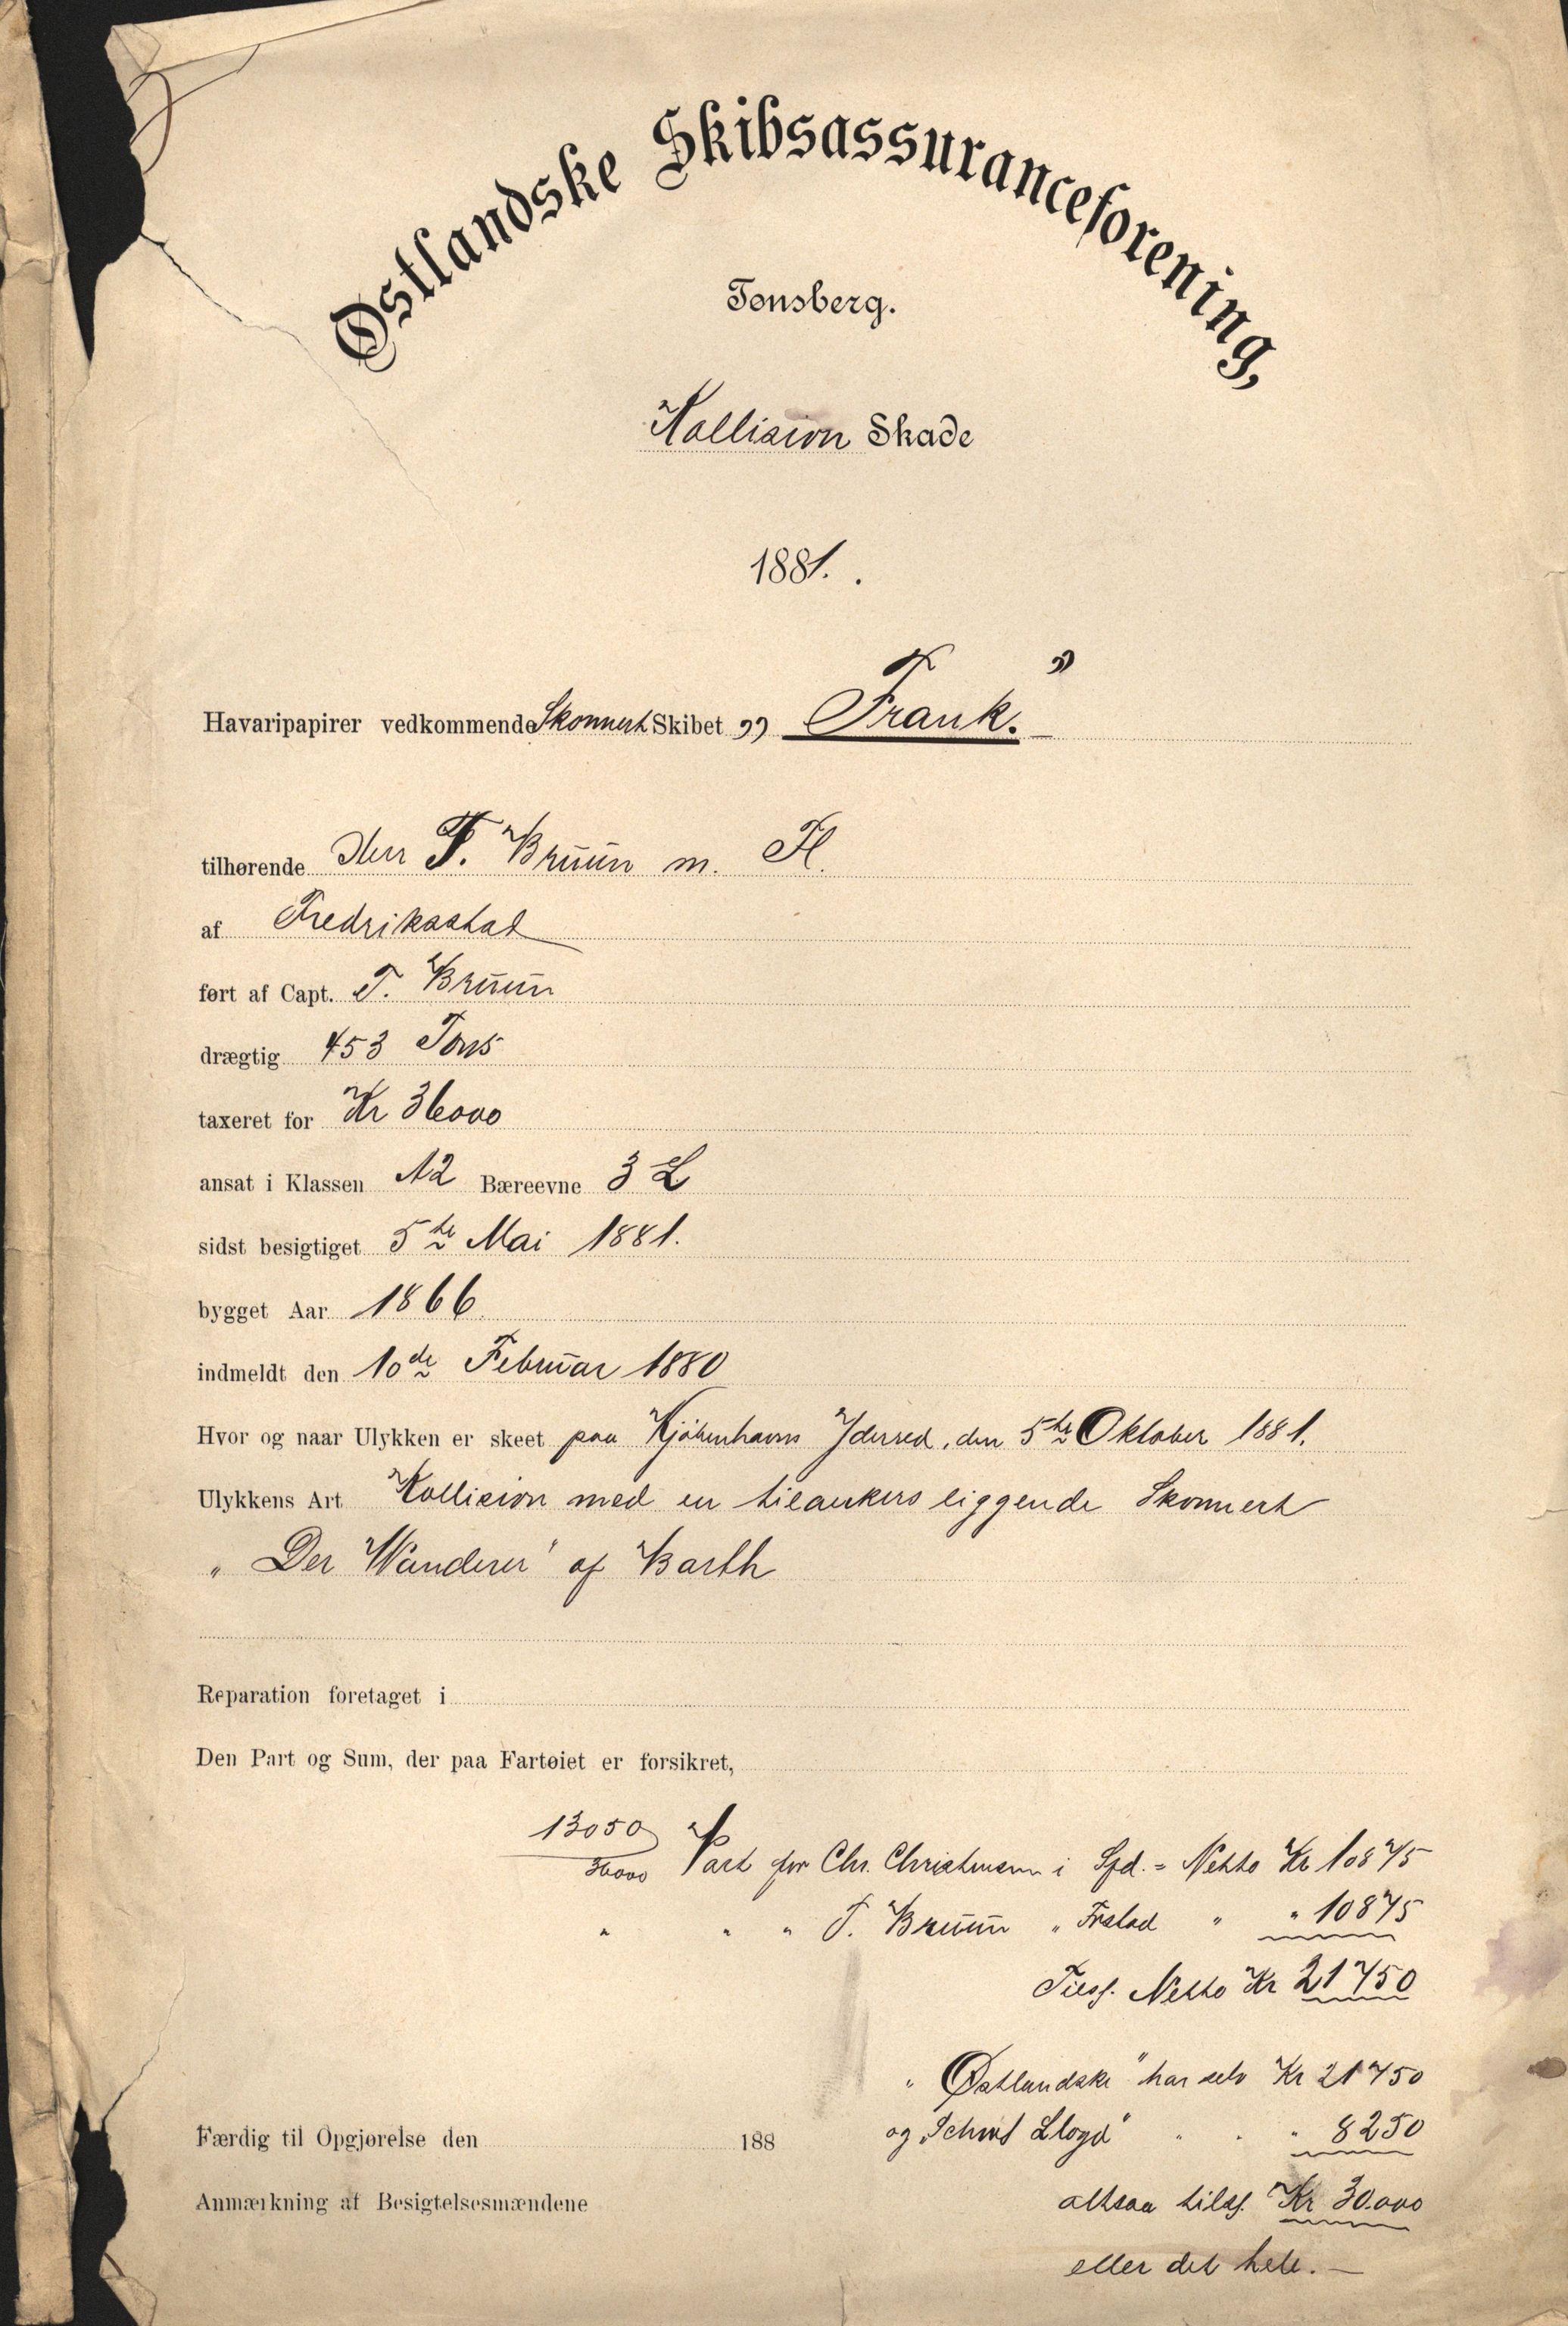 Østlandske Skibsassuranceforening,
Tønsberg.
Kollision Skade
1881. .
Havaripapirer vedkommende Skonnert Skibet „ Frank. "
tilhørende Herr F. Bruun m. Fl.
af Fredriksstad
ført af Capt. T. Bruun
drægtig 453 Tons
taxeret for Kr 36000
ansat i Klassen A2 Bæreevne 3 L
sidst besigtiget 5te Mai 1881.
bygget Aar 1866
indmeldt den 10de Februar 1880
Hvor og naar Ulykken er skeet paa Kjøbenhavns Yderred, den 5te Oktober 1881.
Ulykkens Art Kollision med en tilankers liggende Skonnert
„ Der Wanderer" af Barth
Reparation foretaget i
Den Part og Sum, der paa Fartøiet er forsikret,
13050/36000 Part for Chr. Christensen i Sfd. = Netto Kr 10875
" " " T. Bruun " Frstad " " 10875
Tilsf. Netto Kr 21750
„ Østlandske" har selv Kr 21750
Færdig til Opgjørelse den 188
og „ Lloyd" " " " 8250
Anmærkning af Besigtelsesmændene
altsaa tilsf. Kr 30.000
eller det hele. —